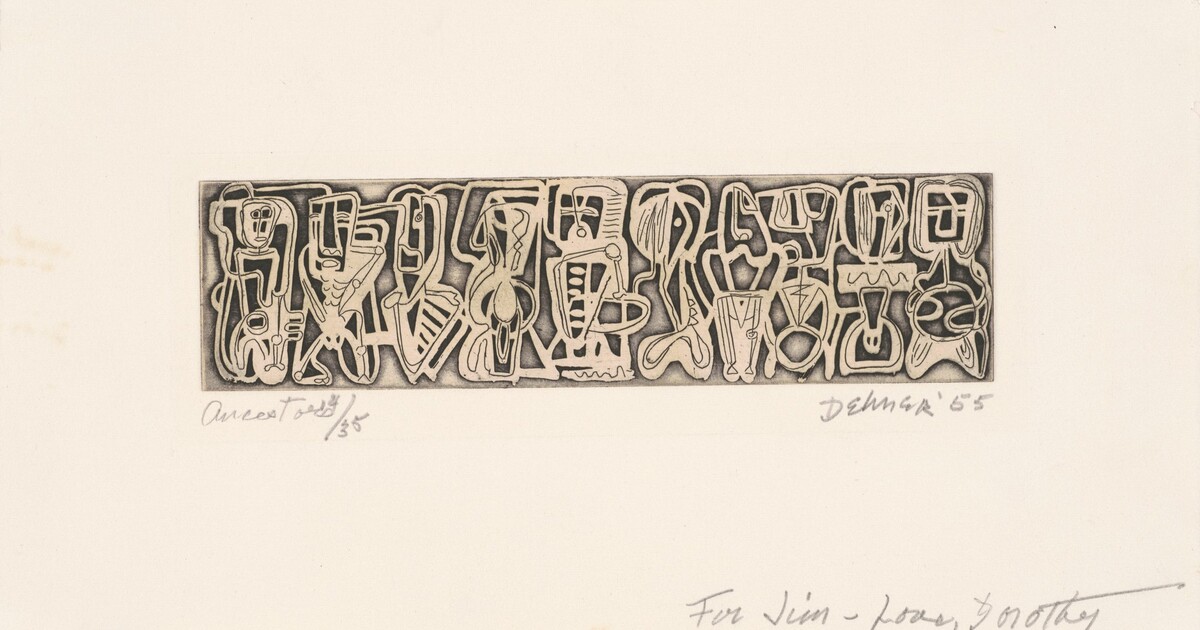 Ancestors /35
Dehner '55
For Jim - Love, Dorothy